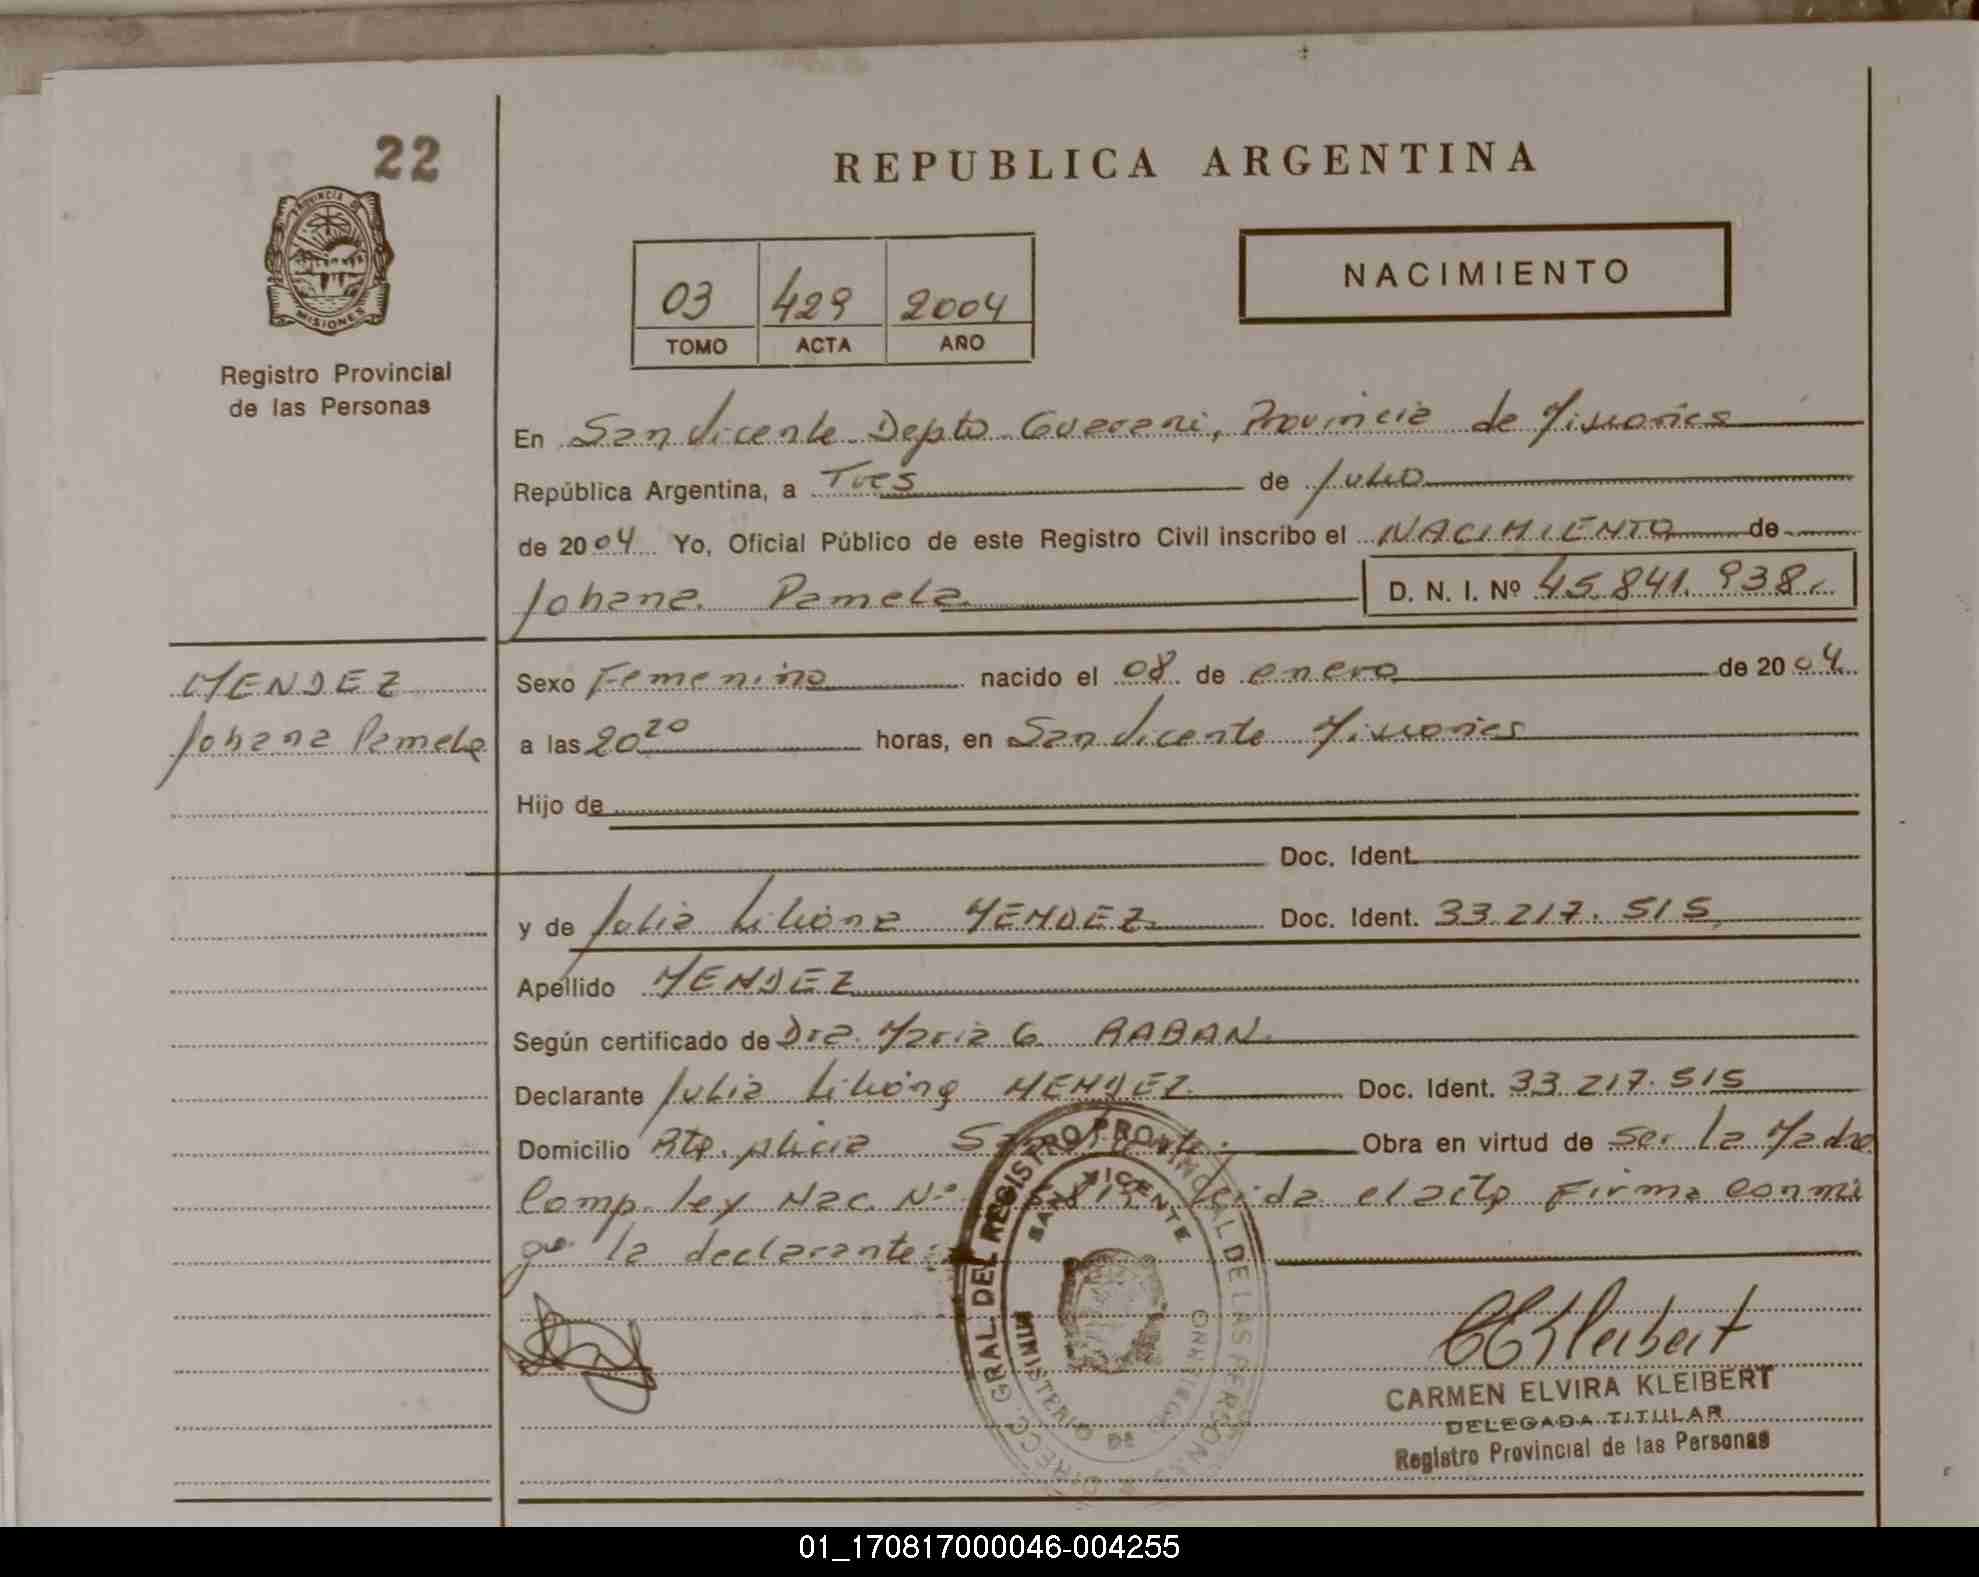 22
REPUBLICA ARGENTINA
PROVINCIA DE
MISIONES
Registro Provincial
de las Personas
03 429 2004
TOMO ACTA AÑO
NACIMIENTO
En San Vicente Depto Guarani, Provincia de Misiones
República Argentina, a Tres de Julio
de 2004 Yo, Oficial Público de este Registro Civil inscribo el NACIMIENTO de
Johana Pamela D. N. I. Nº 45.841.938
MENDEZ
Johana Pamela
Sexo Femenino nacido el 08 de enero de 2004
a las 20 20 horas, en San Vicente Misiones
Hijo de
Doc. Ident.
y de Julia Liliana MENDEZ Doc. Ident. 33.217.515
Apellido MENDEZ
Según certificado de Dra. Maria G. RABAN
Declarante Julia Liliana MENDEZ Doc. Ident. 33.217.515
Domicilio San Vicente Obra en virtud de Ser la Madre
Comp. Ley Nac. Nº Leida el acta Firma conmi
go la declarante
DIRECC. GRAL. DEL REGISTRO PROVINCIAL DE LAS PERSONAS
SAN VICENTE
MINISTERIO DE GOBIERNO
CEKleibert
CARMEN ELVIRA KLEIBERT
DELEGADA TITULAR
Registro Provincial de las Personas
01_170817000046-004255